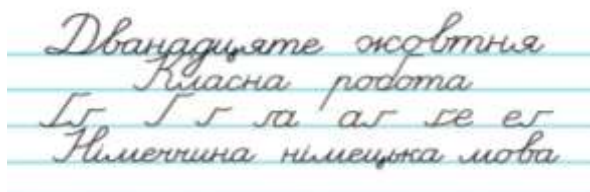 Дванадцяте жовтня
Класна робота
Гг Г г га аг ге ег
Німеччина німецька мова